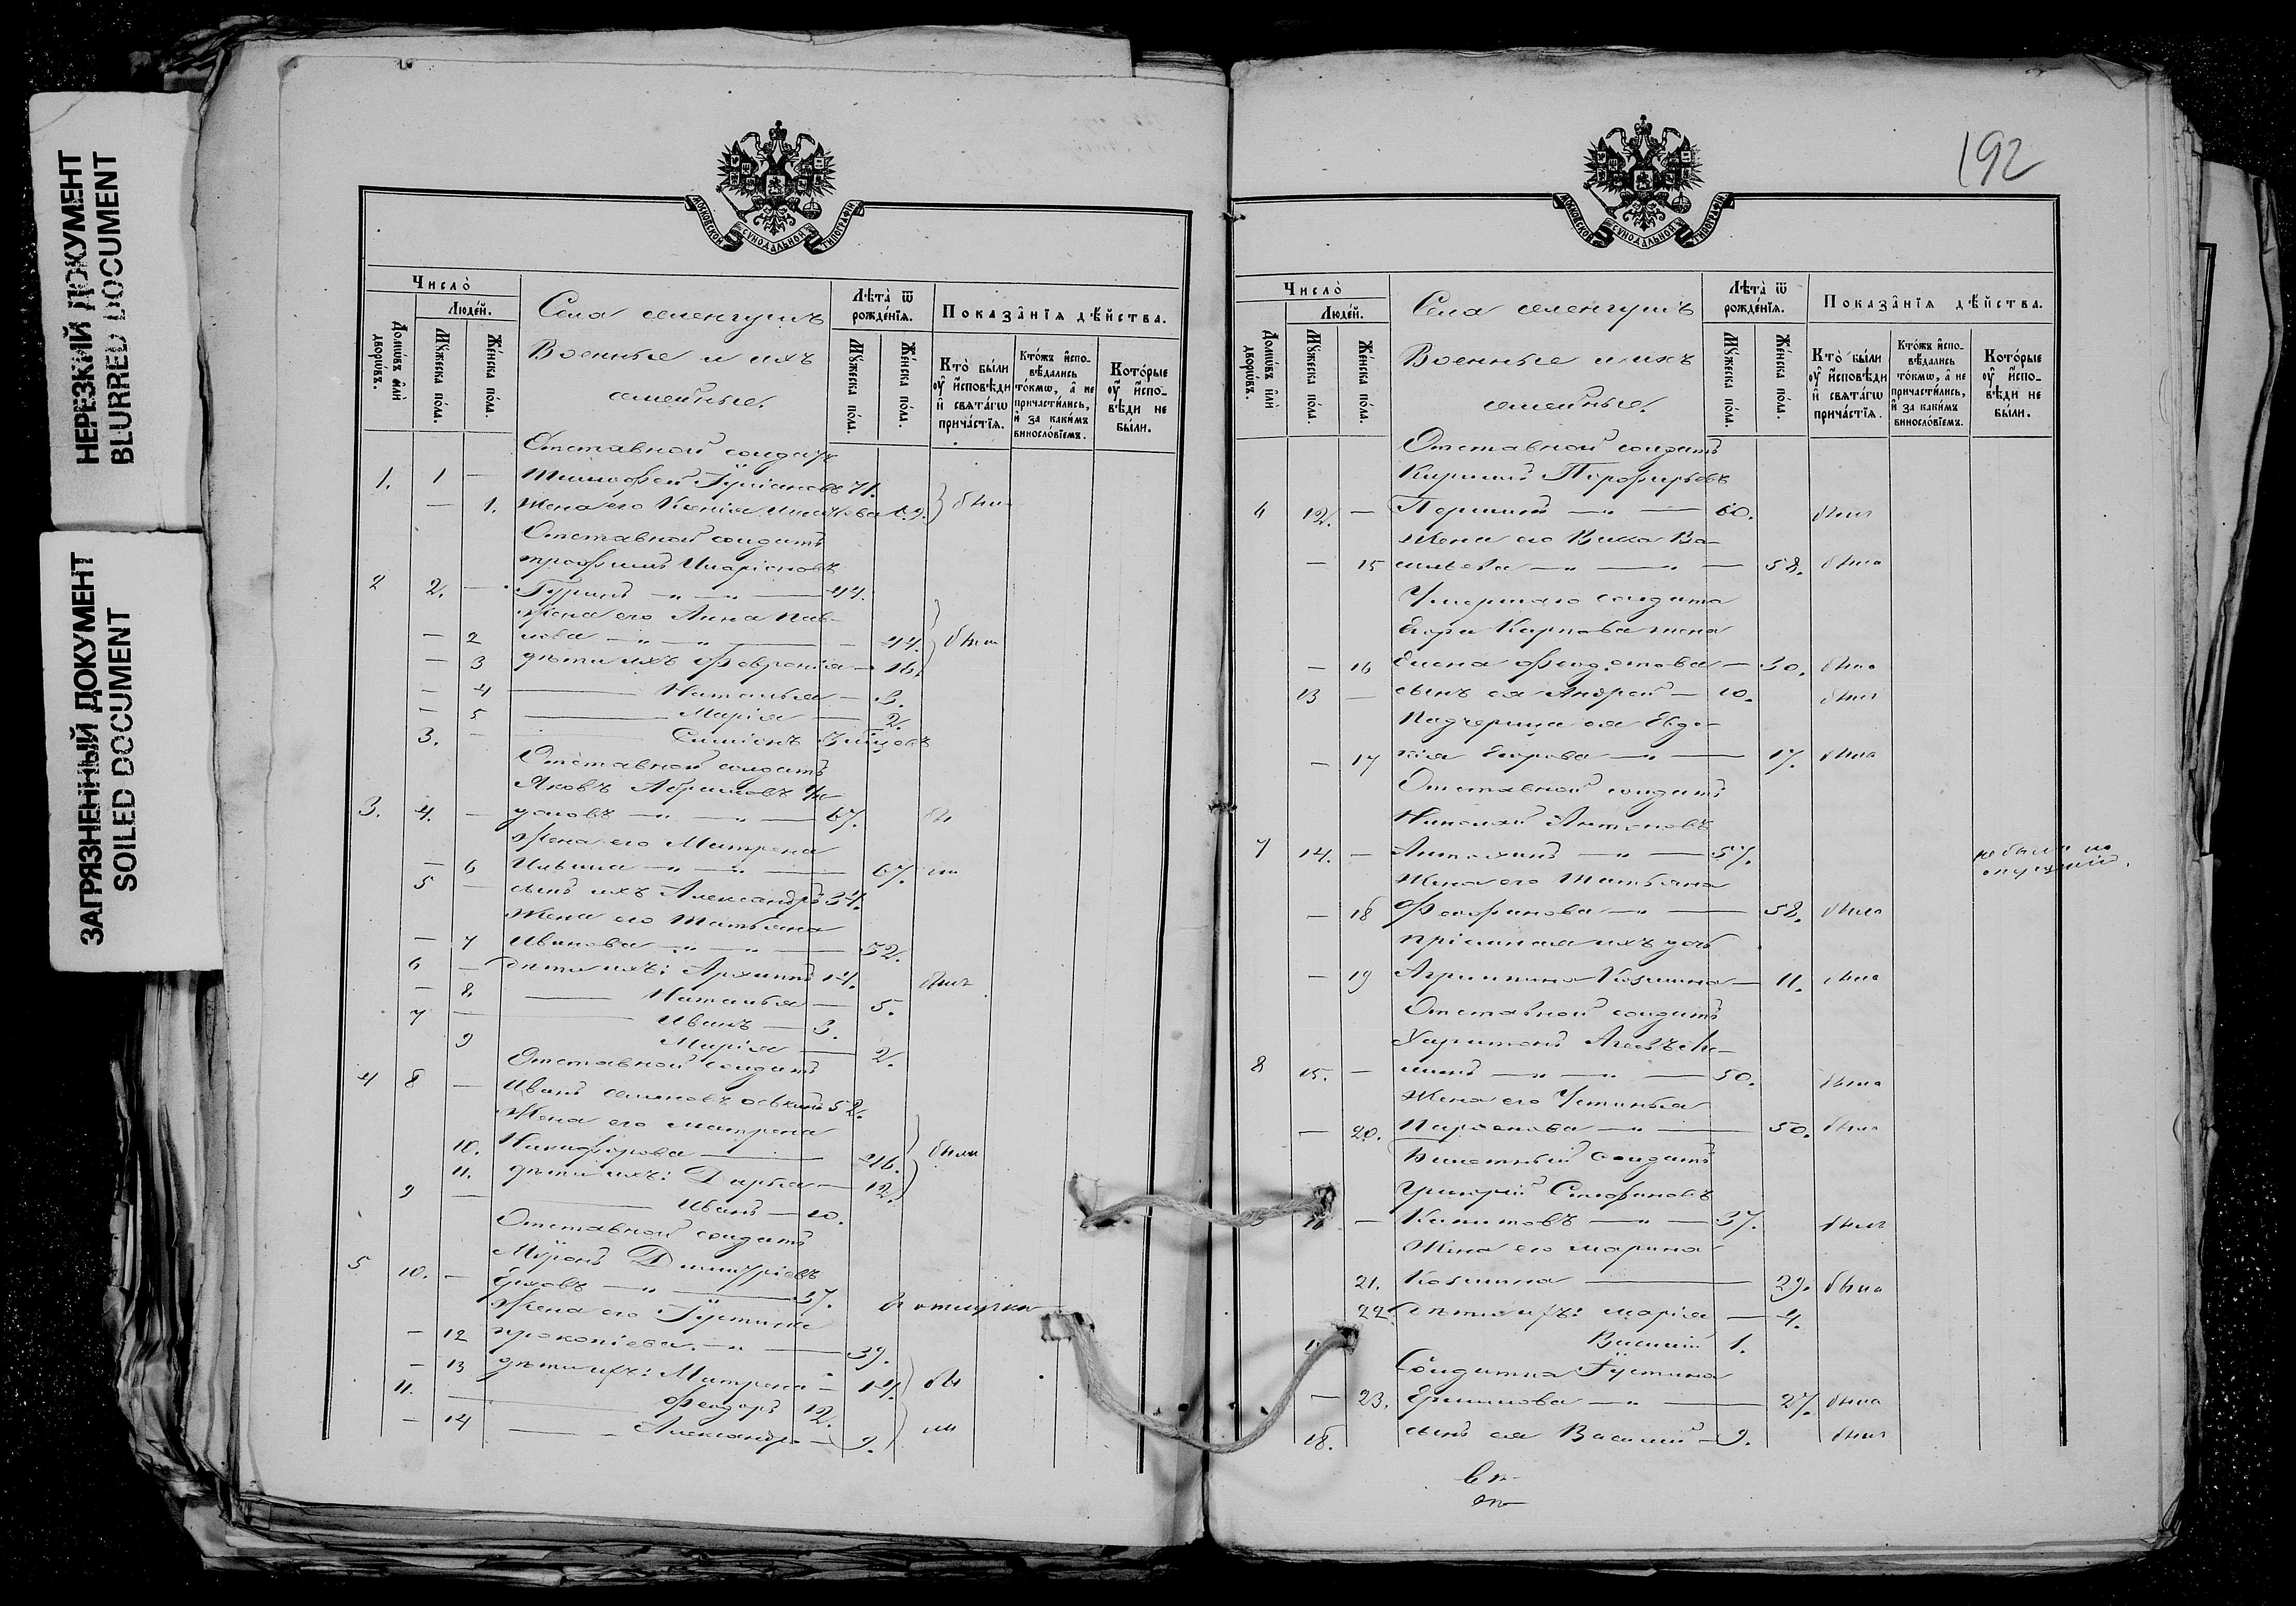 НЕРЕЗКИЙ ДОКУМЕНТ
BLURRED DOCUMENT
ЗАГРЯЗНЕННЫЙ ДОКУМЕНТ
SOILED DOCUMENT
МОСКОВСКОЙ СѴНОДАЛЬНОЙ ТИПОГРАФІИ
Число̀
Домѡ́въ и҆лѝ дворѡ́въ.
Люде́й.
Мꙋ́жеска по́ла.
Же́нска по́ла.
Села селенгушъ
Военные и ихъ
семейные.
Лѣ́та ѿ рожде́нїѧ.
Мꙋ́жеска по́ла.
Же́нска по́ла.
Показа̂нїѧ дѣ́йства.
Кто̀ бы́ли оу҆ и҆сповѣ́ди и҆ свѧта́гѡ прича́стїѧ.
Кто́жъ и҆спо- вѣ́дались то́кмѡ, а҆ не причасти́лись, и҆ за каки́мъ винословїемъ.
Кото́рые оу҆ и҆спо- вѣ́ди не бы́ли.
Отставной солдатъ
1. 1 — Тимофей 71.
— 1. Жена его Ксенія
Отставной солдатъ
Трофимъ Иларіоновъ
2 2. — Гуринъ — 44.
Жена его Анна Пав-
— 2 лова — 44. были
— 3 дѣти ихъ Февронія — 16.
— 4 Наталья — 3.
— 5 Марія — 2.
3. — Симіонъ
Отставной солдатъ
Яковъ Абрамовъ
3. 4. — 67. бы
Жена его Матрена
— 6 Ильина — 67. ли
5 — сынъ ихъ Александръ 34.
Жена его Татьяна
— 7 Иванова — 32.
6 — дѣти ихъ: Архипъ 14. были
— 8. Наталья — 5.
7 — Иванъ — 3.
9 Марія — 2.
Отставной солдатъ
4 8 — Иванъ семеновъ 52.
Жена его матрена
10. Никифорова — 46. были
11. дѣти ихъ: Дарья — 12.
9 — Иванъ — 10.
Отставной солдатъ
Мѵронъ Димитріевъ
5 10. — 37. въ отлучке
Жена его Іустина
— 12 прокопіева — 39.
— 13 дѣти ихъ: Матрена — 14. бы
11. Феодоръ 12.
— 14 Александра — 9. ли
192
МОСКОВСКОЙ СѴНОДАЛЬНОЙ ТИПОГРАФІИ
Число̀
Домѡ́въ и҆лѝ дворѡ́въ.
Люде́й.
Мꙋ́жеска по́ла.
Же́нска по́ла.
Села селенгушъ
Военные и ихъ
семейные.
Лѣ́та ѿ рожде́нїѧ.
Мꙋ́жеска по́ла.
Же́нска по́ла.
Показа̂нїѧ дѣ́йства.
Кто̀ бы́ли оу҆ и҆сповѣ́ди и҆ свѧта́гѡ прича́стїѧ.
Кто́жъ и҆спо- вѣ́дались то́кмѡ, а҆ не причасти́лись, и҆ за каки́мъ винословїемъ.
Кото́рые оу҆ и҆спо- вѣ́ди не бы́ли.
Отставной солдатъ
Кирилъ Порфирьевъ
6 12. — 60. былъ
Жена его Васса Ва-
— 15 сильева — 58. была
Умершаго солдата
Егора Карпова жена
— 16 Елена Федотова — 30. была
13 — сынъ ея Андрей — 10. былъ
Падчерица ея Евдо-
— 17 кія Егорова — 17. была
Отставной солдатъ
Николай Антоновъ
7 14. — 57. не былъ по опущенію.
Жена его Татьяна
— 18 Феофанова — 58. была
пріемная ихъ дочь
— 19 Агрипина Козмина — 11. была
Отставной солдатъ
Харитонъ
8 15. — 50. былъ
Жена его Устинья
— 20. Парфенова — 50. была
Билетный Солдатъ
Григорій Стефановъ
— 37. былъ
Жена его марина
21. Козмина — 29. была
22. дѣти ихъ: марія — 4.
Василій 1.
Солдатка Іустина
— 23. Ермилова — 27. была
18. сынъ ея Василий — 9. былъ